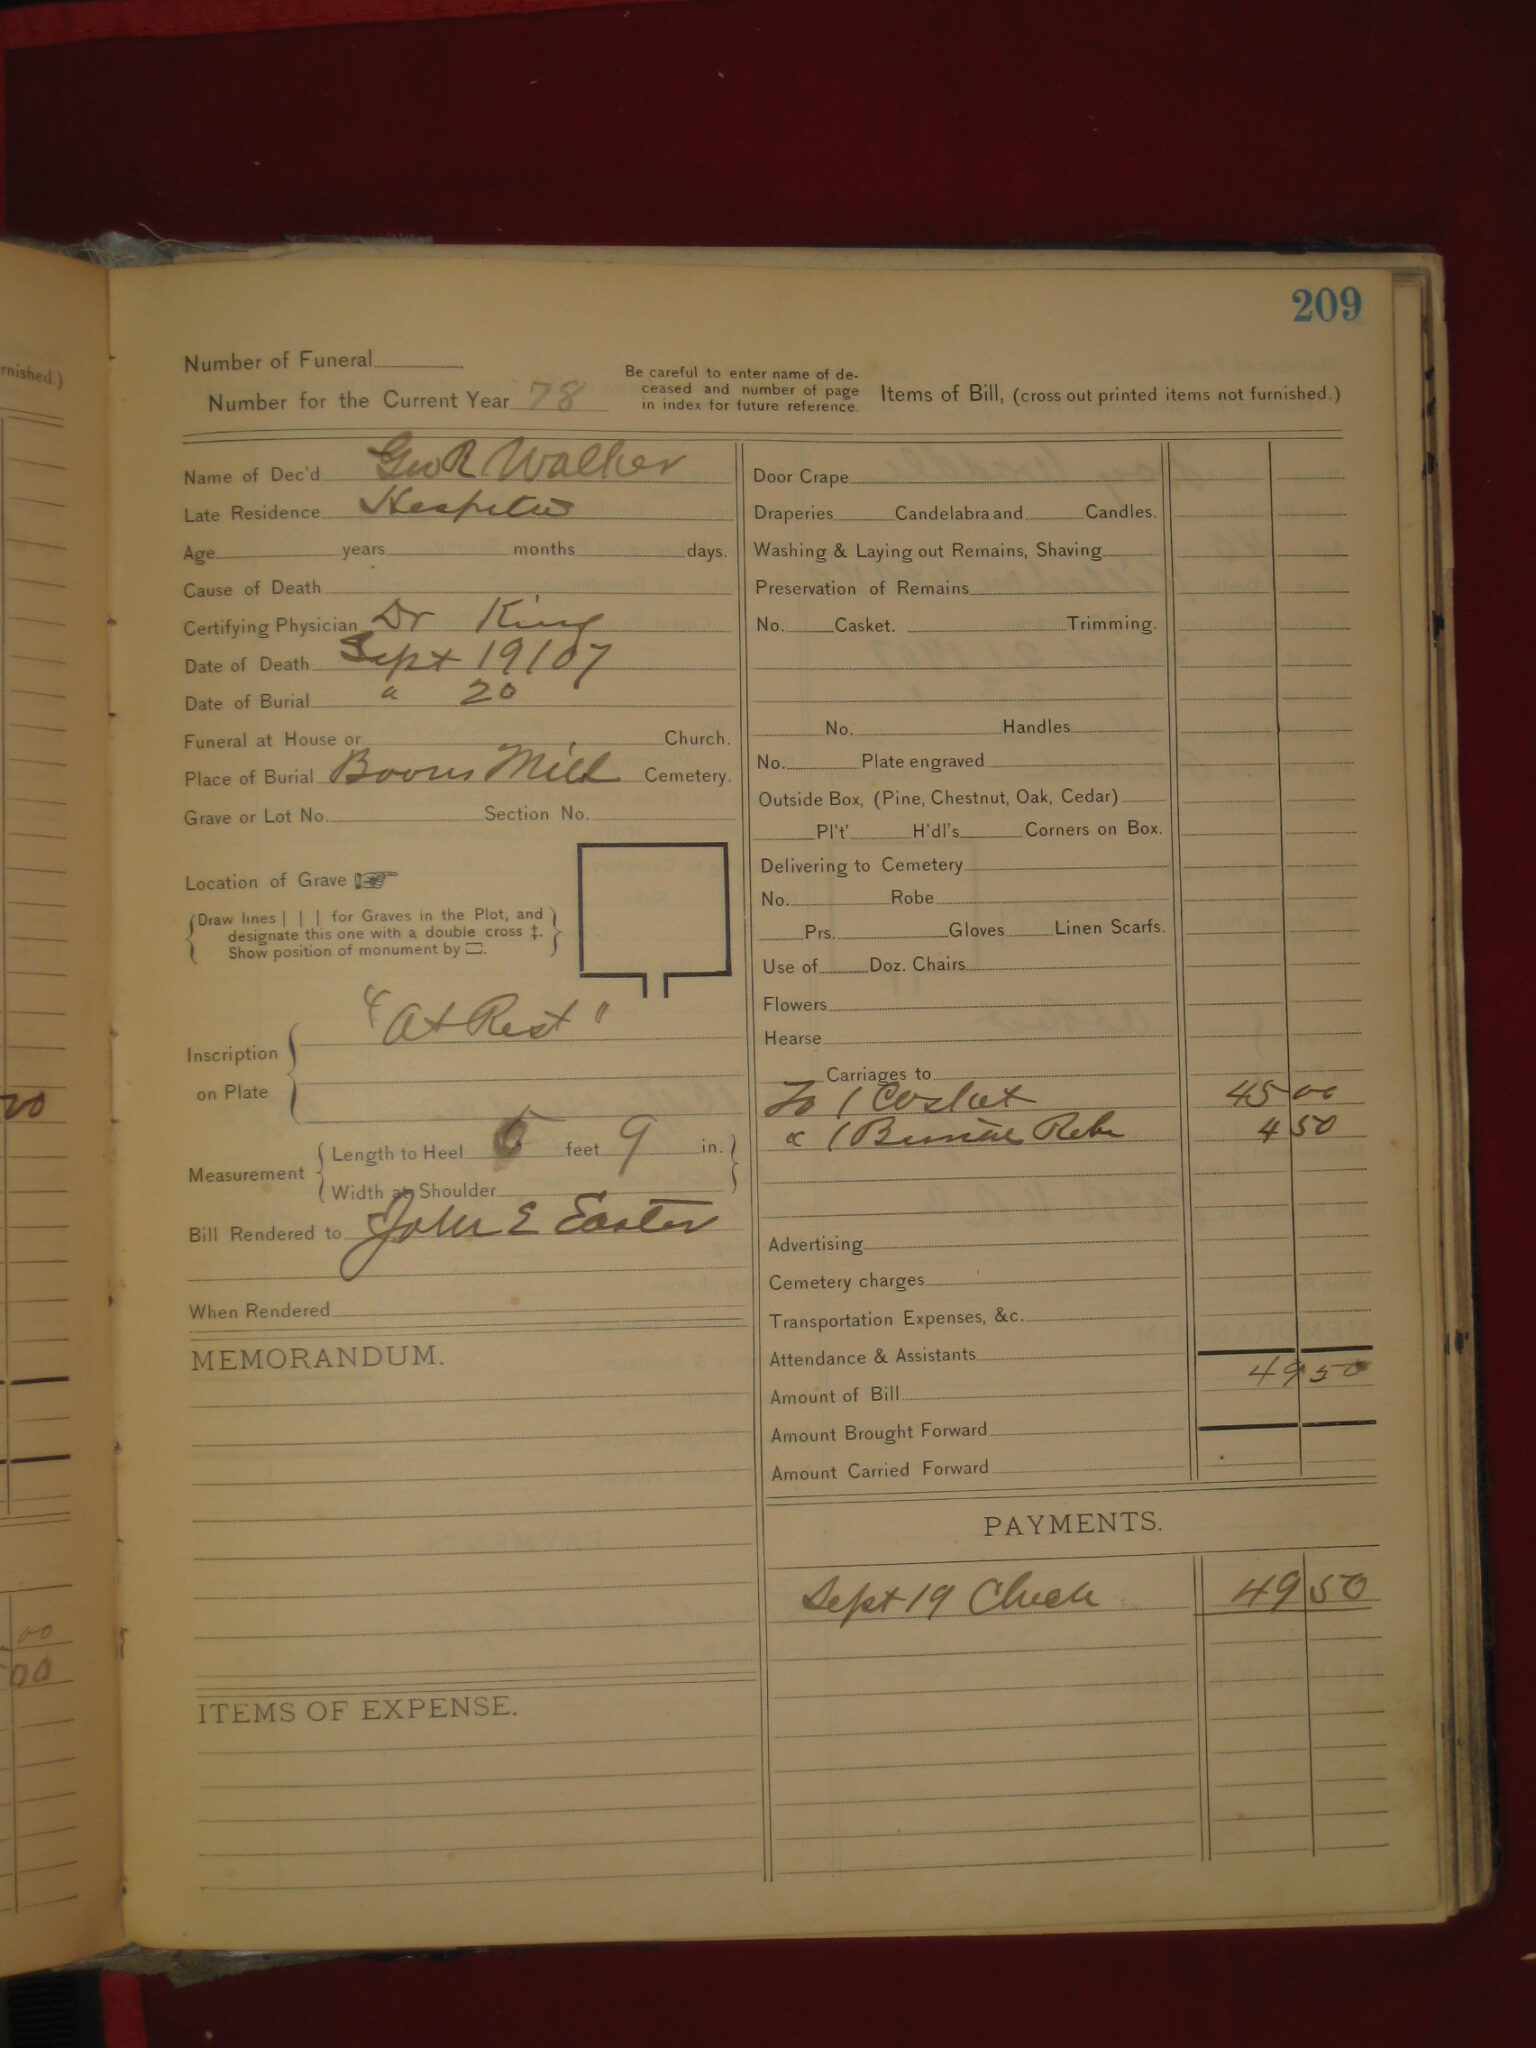 209
rnished.)
Number of Funeral
Number for the Current Year 78
Be careful to enter name of de-
ceased and number of page
in index for future reference.
Items of Bill, (cross out printed items not furnished.)
Name of Dec'd Geo R Walker
Late Residence
Age years months days.
Cause of Death
Certifying Physician Dr King
Date of Death Sept 19/07
Date of Burial " 20
Funeral at House or Church.
Place of Burial Boons Mill Cemetery.
Grave or Lot No. Section No.
Location of Grave
Draw lines | | | for Graves in the Plot, and
designate this one with a double cross ‡.
Show position of monument by ▭.
Inscription on Plate "At Rest"
Measurement
Length to Heel feet 9 in.
Width at Shoulder
Bill Rendered to John E Easter
When Rendered
MEMORANDUM.
ITEMS OF EXPENSE.
Door Crape
Draperies Candelabra and Candles.
Washing & Laying out Remains, Shaving
Preservation of Remains
No. Casket. Trimming.
No. Handles
No. Plate engraved
Outside Box, (Pine, Chestnut, Oak, Cedar)
Pl't' H'dl's Corners on Box.
Delivering to Cemetery
No. Robe
Prs. Gloves Linen Scarfs.
Use of Doz. Chairs
Flowers
Hearse
Carriages to
To 1 Casket 45 00
" 1 Burial Robe 4 50
Advertising
Cemetery charges
Transportation Expenses, &c.
Attendance & Assistants
Amount of Bill 49 50
Amount Brought Forward
Amount Carried Forward
PAYMENTS.
Sept 19 Check 49 50